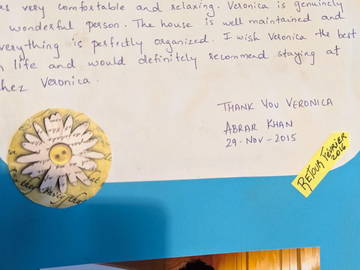 as very comfortable and relaxing. Veronica is genuinely
wonderful person. The house is well maintained and
everything is perfectly organized. I wish Veronica the best
in life and would definitely recommend staying at
chez Veronica.
THANK YOU VERONICA
ABRAR KHAN
29-NOV-2015
RETOUR FÉVRIER
2016